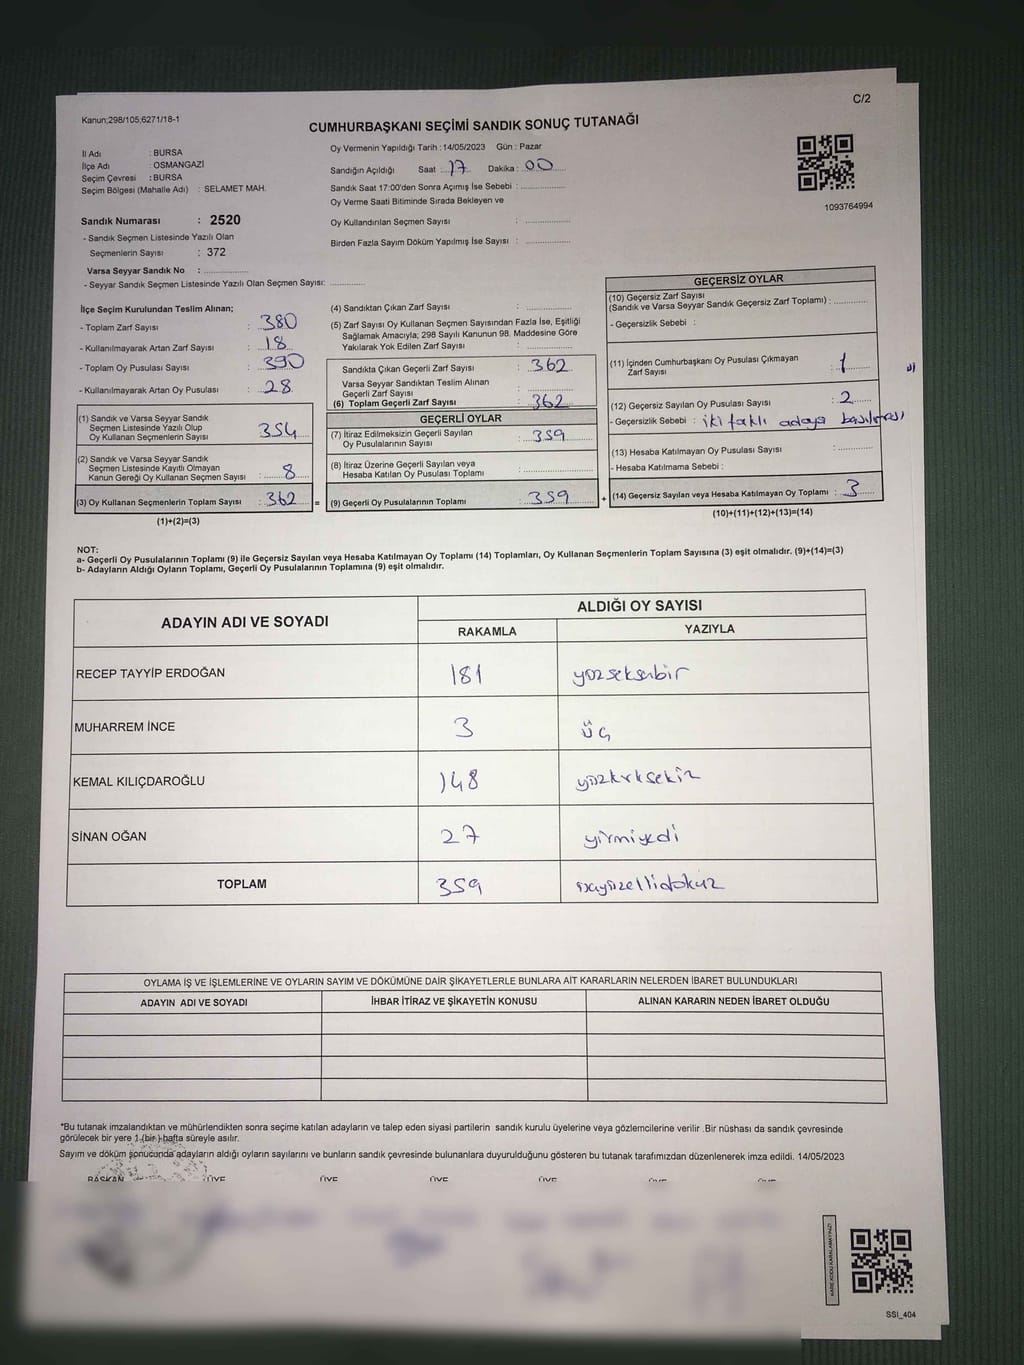 C/2
Kanun;298/105;6271/18-1
CUMHURBAŞKANI SEÇİMİ SANDIK SONUÇ TUTANAĞI
İl Adı : BURSA
İlçe Adı : OSMANGAZİ
Seçim Çevresi : BURSA
Seçim Bölgesi (Mahalle Adı) : SELAMET MAH.
Sandık Numarası : 2520
- Sandık Seçmen Listesinde Yazılı Olan
Seçmenlerin Sayısı : 372
Varsa Seyyar Sandık No :
- Seyyar Sandık Seçmen Listesinde Yazılı Olan Seçmen Sayısı:
Oy Vermenin Yapıldığı Tarih :14/05/2023 Gün : Pazar
Sandığın Açıldığı Saat : 17 Dakika : 00
Sandık Saat 17:00'den Sonra Açımış İse Sebebi :
Oy Verme Saati Bitiminde Sırada Bekleyen ve
Oy Kullandırılan Seçmen Sayısı :
Birden Fazla Sayım Döküm Yapılmış İse Sayısı :
1093764994
İlçe Seçim Kurulundan Teslim Alınan;
- Toplam Zarf Sayısı : 380
- Kullanılmayarak Artan Zarf Sayısı : 18
- Toplam Oy Pusulası Sayısı : 390
- Kullanılmayarak Artan Oy Pusulası : 28
(1) Sandık ve Varsa Seyyar Sandık
Seçmen Listesinde Yazılı Olup
Oy Kullanan Seçmenlerin Sayısı : 354
(2) Sandık ve Varsa Seyyar Sandık
Seçmen Listesinde Kayıtlı Olmayan
Kanun Gereği Oy Kullanan Seçmen Sayısı : 8
(3) Oy Kullanan Seçmenlerin Toplam Sayısı : 362 =
(1)+(2)=(3)
(4) Sandıktan Çıkan Zarf Sayısı :
(5) Zarf Sayısı Oy Kullanan Seçmen Sayısından Fazla İse, Eşitliği
Sağlamak Amacıyla; 298 Sayılı Kanunun 98. Maddesine Göre
Yakılarak Yok Edilen Zarf Sayısı :
Sandıkta Çıkan Geçerli Zarf Sayısı : 362
Varsa Seyyar Sandıktan Teslim Alınan
Geçerli Zarf Sayısı :
(6) Toplam Geçerli Zarf Sayısı : 362
GEÇERLİ OYLAR
(7) İtiraz Edilmeksizin Geçerli Sayılan
Oy Pusulalarının Sayısı : 359
(8) İtiraz Üzerine Geçerli Sayılan veya
Hesaba Katılan Oy Pusulası Toplamı :
(9) Geçerli Oy Pusulalarının Toplamı : 359 +
GEÇERSİZ OYLAR
(10) Geçersiz Zarf Sayısı
(Sandık ve Varsa Seyyar Sandık Geçersiz Zarf Toplamı) :
- Geçersizlik Sebebi :
(11) İçinden Cumhurbaşkanı Oy Pusulası Çıkmayan
Zarf Sayısı : 1
(12) Geçersiz Sayılan Oy Pusulası Sayısı : 2
- Geçersizlik Sebebi : iki faklı adaya basılması
(13) Hesaba Katılmayan Oy Pusulası Sayısı :
- Hesaba Katılmama Sebebi :
(14) Geçersiz Sayılan veya Hesaba Katılmayan Oy Toplamı : 3
(10)+(11)+(12)+(13)=(14)
NOT:
a- Geçerli Oy Pusulalarının Toplamı (9) ile Geçersiz Sayılan veya Hesaba Katılmayan Oy Toplamı (14) Toplamları, Oy Kullanan Seçmenlerin Toplam Sayısına (3) eşit olmalıdır. (9)+(14)=(3)
b- Adayların Aldığı Oyların Toplamı, Geçerli Oy Pusulalarının Toplamına (9) eşit olmalıdır.
ADAYIN ADI VE SOYADI
ALDIĞI OY SAYISI
RAKAMLA YAZIYLA
RECEP TAYYİP ERDOĞAN 181 yüzseksenbir
MUHARREM İNCE 3 üç
KEMAL KILIÇDAROĞLU 148 yüzkırksekiz
SİNAN OĞAN 27 yirmiyedi
TOPLAM 359 üçyüzellidokuz
OYLAMA İŞ VE İŞLEMLERİNE VE OYLARIN SAYIM VE DÖKÜMÜNE DAİR ŞİKAYETLERLE BUNLARA AİT KARARLARIN NELERDEN İBARET BULUNDUKLARI
ADAYIN ADI VE SOYADI İHBAR İTİRAZ VE ŞİKAYETİN KONUSU ALINAN KARARIN NEDEN İBARET OLDUĞU
*Bu tutanak imzalandıktan ve mühürlendikten sonra seçime katılan adayların ve talep eden siyasi partilerin sandık kurulu üyelerine veya gözlemcilerine verilir .Bir nüshası da sandık çevresinde
görülecek bir yere 1 (bir ) hafta süreyle asılır.
Sayım ve döküm sonucunda adayların aldığı oyların sayılarını ve bunların sandık çevresinde bulunanlara duyurulduğunu gösteren bu tutanak tarafımızdan düzenlenerek imza edildi. 14/05/2023
BAŞKAN ÜYE ÜYE ÜYE ÜYE
KARE KODU KARALAMAYINIZ!
SSI_404